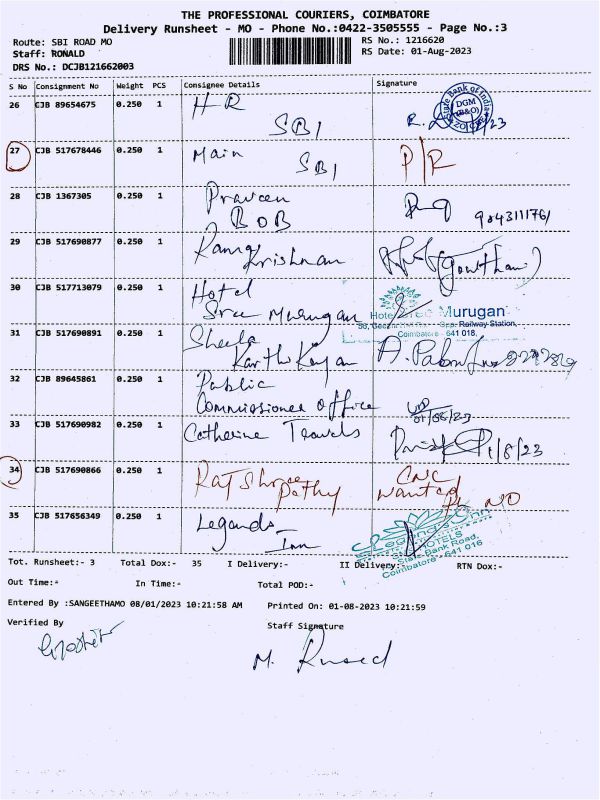 THE PROFESSIONAL COURIERS, COIMBATORE
Delivery Runsheet - MO - Phone No.:0422-3505555 - Page No.:3
Route: SBI ROAD MO
RS No.: 1216620
Staff: RONALD
RS Date: 01-Aug-2023
DRS No.: DCJB121662003
S No Consignment No Weight PCS Consignee Details Signature
26 CJB 89654675 0.250 1 HR
SBI
State Bank of India
DGM
(B&O)
27 CJB 517678446 0.250 1 Main
SBI P/R
28 CJB 1367305 0.250 1 Praveen
BOB
29 CJB 517690877 0.250 1 Ramya
Krishnan (Gowtham)
30 CJB 517713079 0.250 1 Hotel
Sree Murugan
Hotel Sree Murugan
Opp. Railway Station,
Coimbatore - 641 018.
31 CJB 517690891 0.250 1 Sheela
Karthikeyan
32 CJB 89645861 0.250 1 Public
Commissioner office 01/08/23
33 CJB 517690982 0.250 1 Catherine Travels 1/8/23
34 CJB 517690866 0.250 1 Rajshree CNC
pathy wanted
NO
35 CJB 517656349 0.250 1 Legands
Inn
HOTELS
State Bank Road,
Coimbatore - 641 016
Tot. Runsheet:- 3 Total Dox:- 35 I Delivery:- II Delivery:- RTN Dox:-
Out Time:- In Time:- Total POD:-
Entered By :SANGEETHAMO 08/01/2023 10:21:58 AM Printed On: 01-08-2023 10:21:59
Verified By Staff Signature